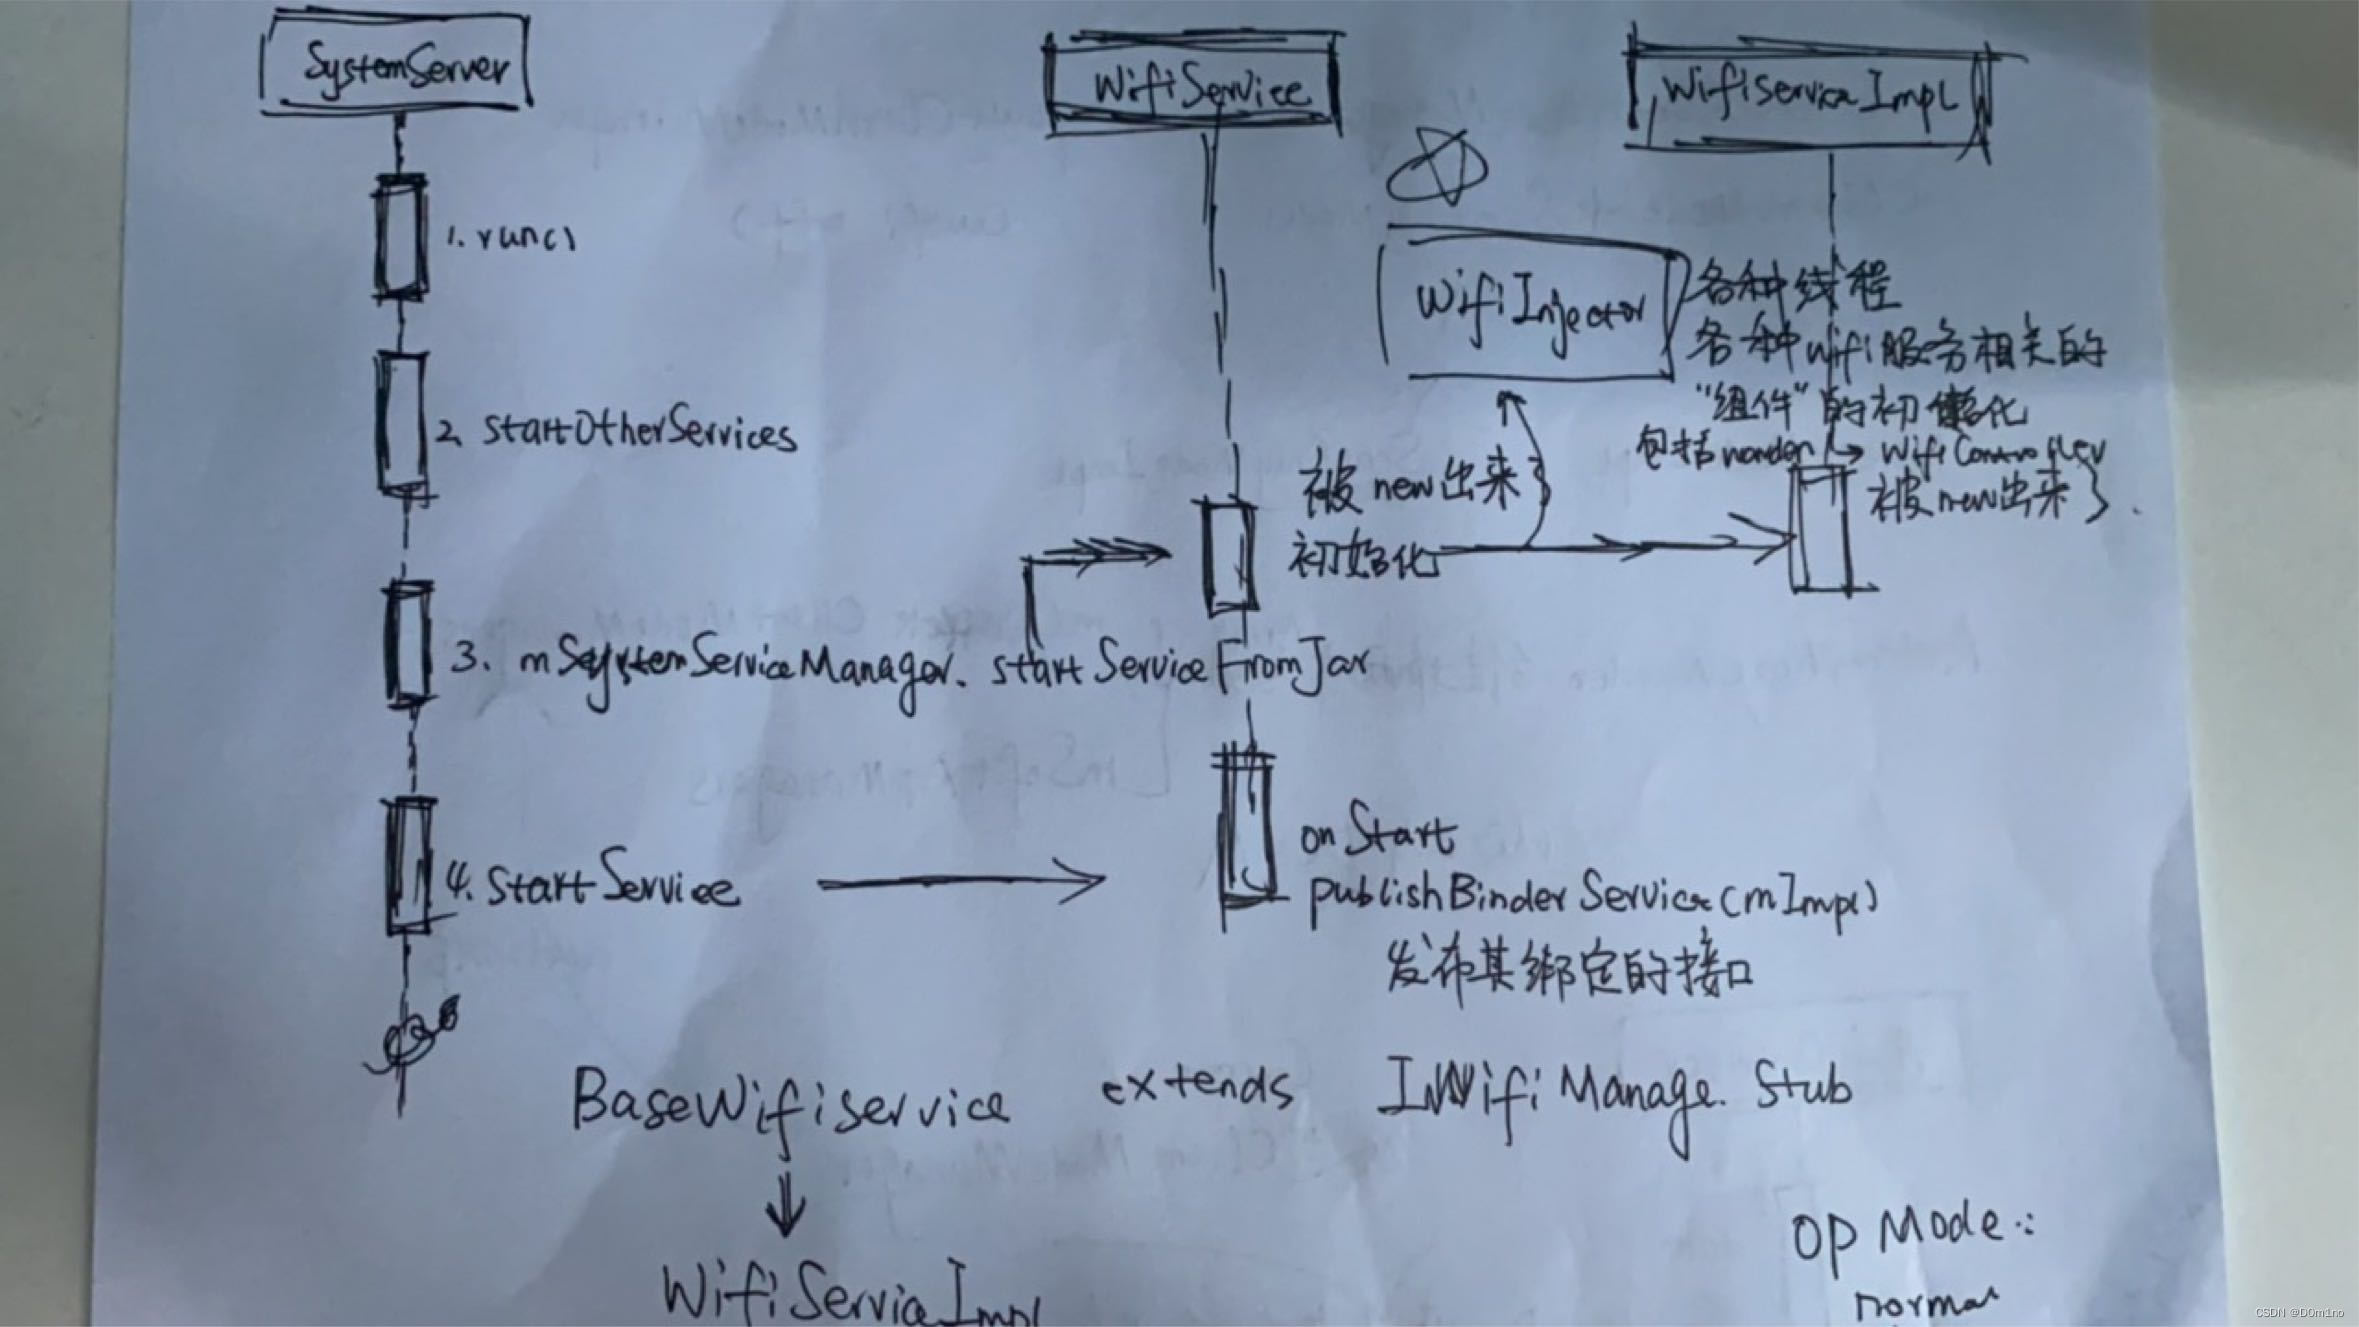 SystemServer
WifiService
WifiServiceImpl
1. run()
WifiInjector
各种线程
各种wifi服务相关的
"组件"的初始化
2. startOtherServices
包括warden → WifiController
被new出来
被new出来
初始化
3. mSystemServiceManager. startServiceFromJar
onStart
4. StartService
publishBinderService(mImpl)
发布其绑定的接口
BaseWifiservice extends IWifiManage. Stub
WifiServiceImpl
OP Mode:
normal
CSDN @D0m1no